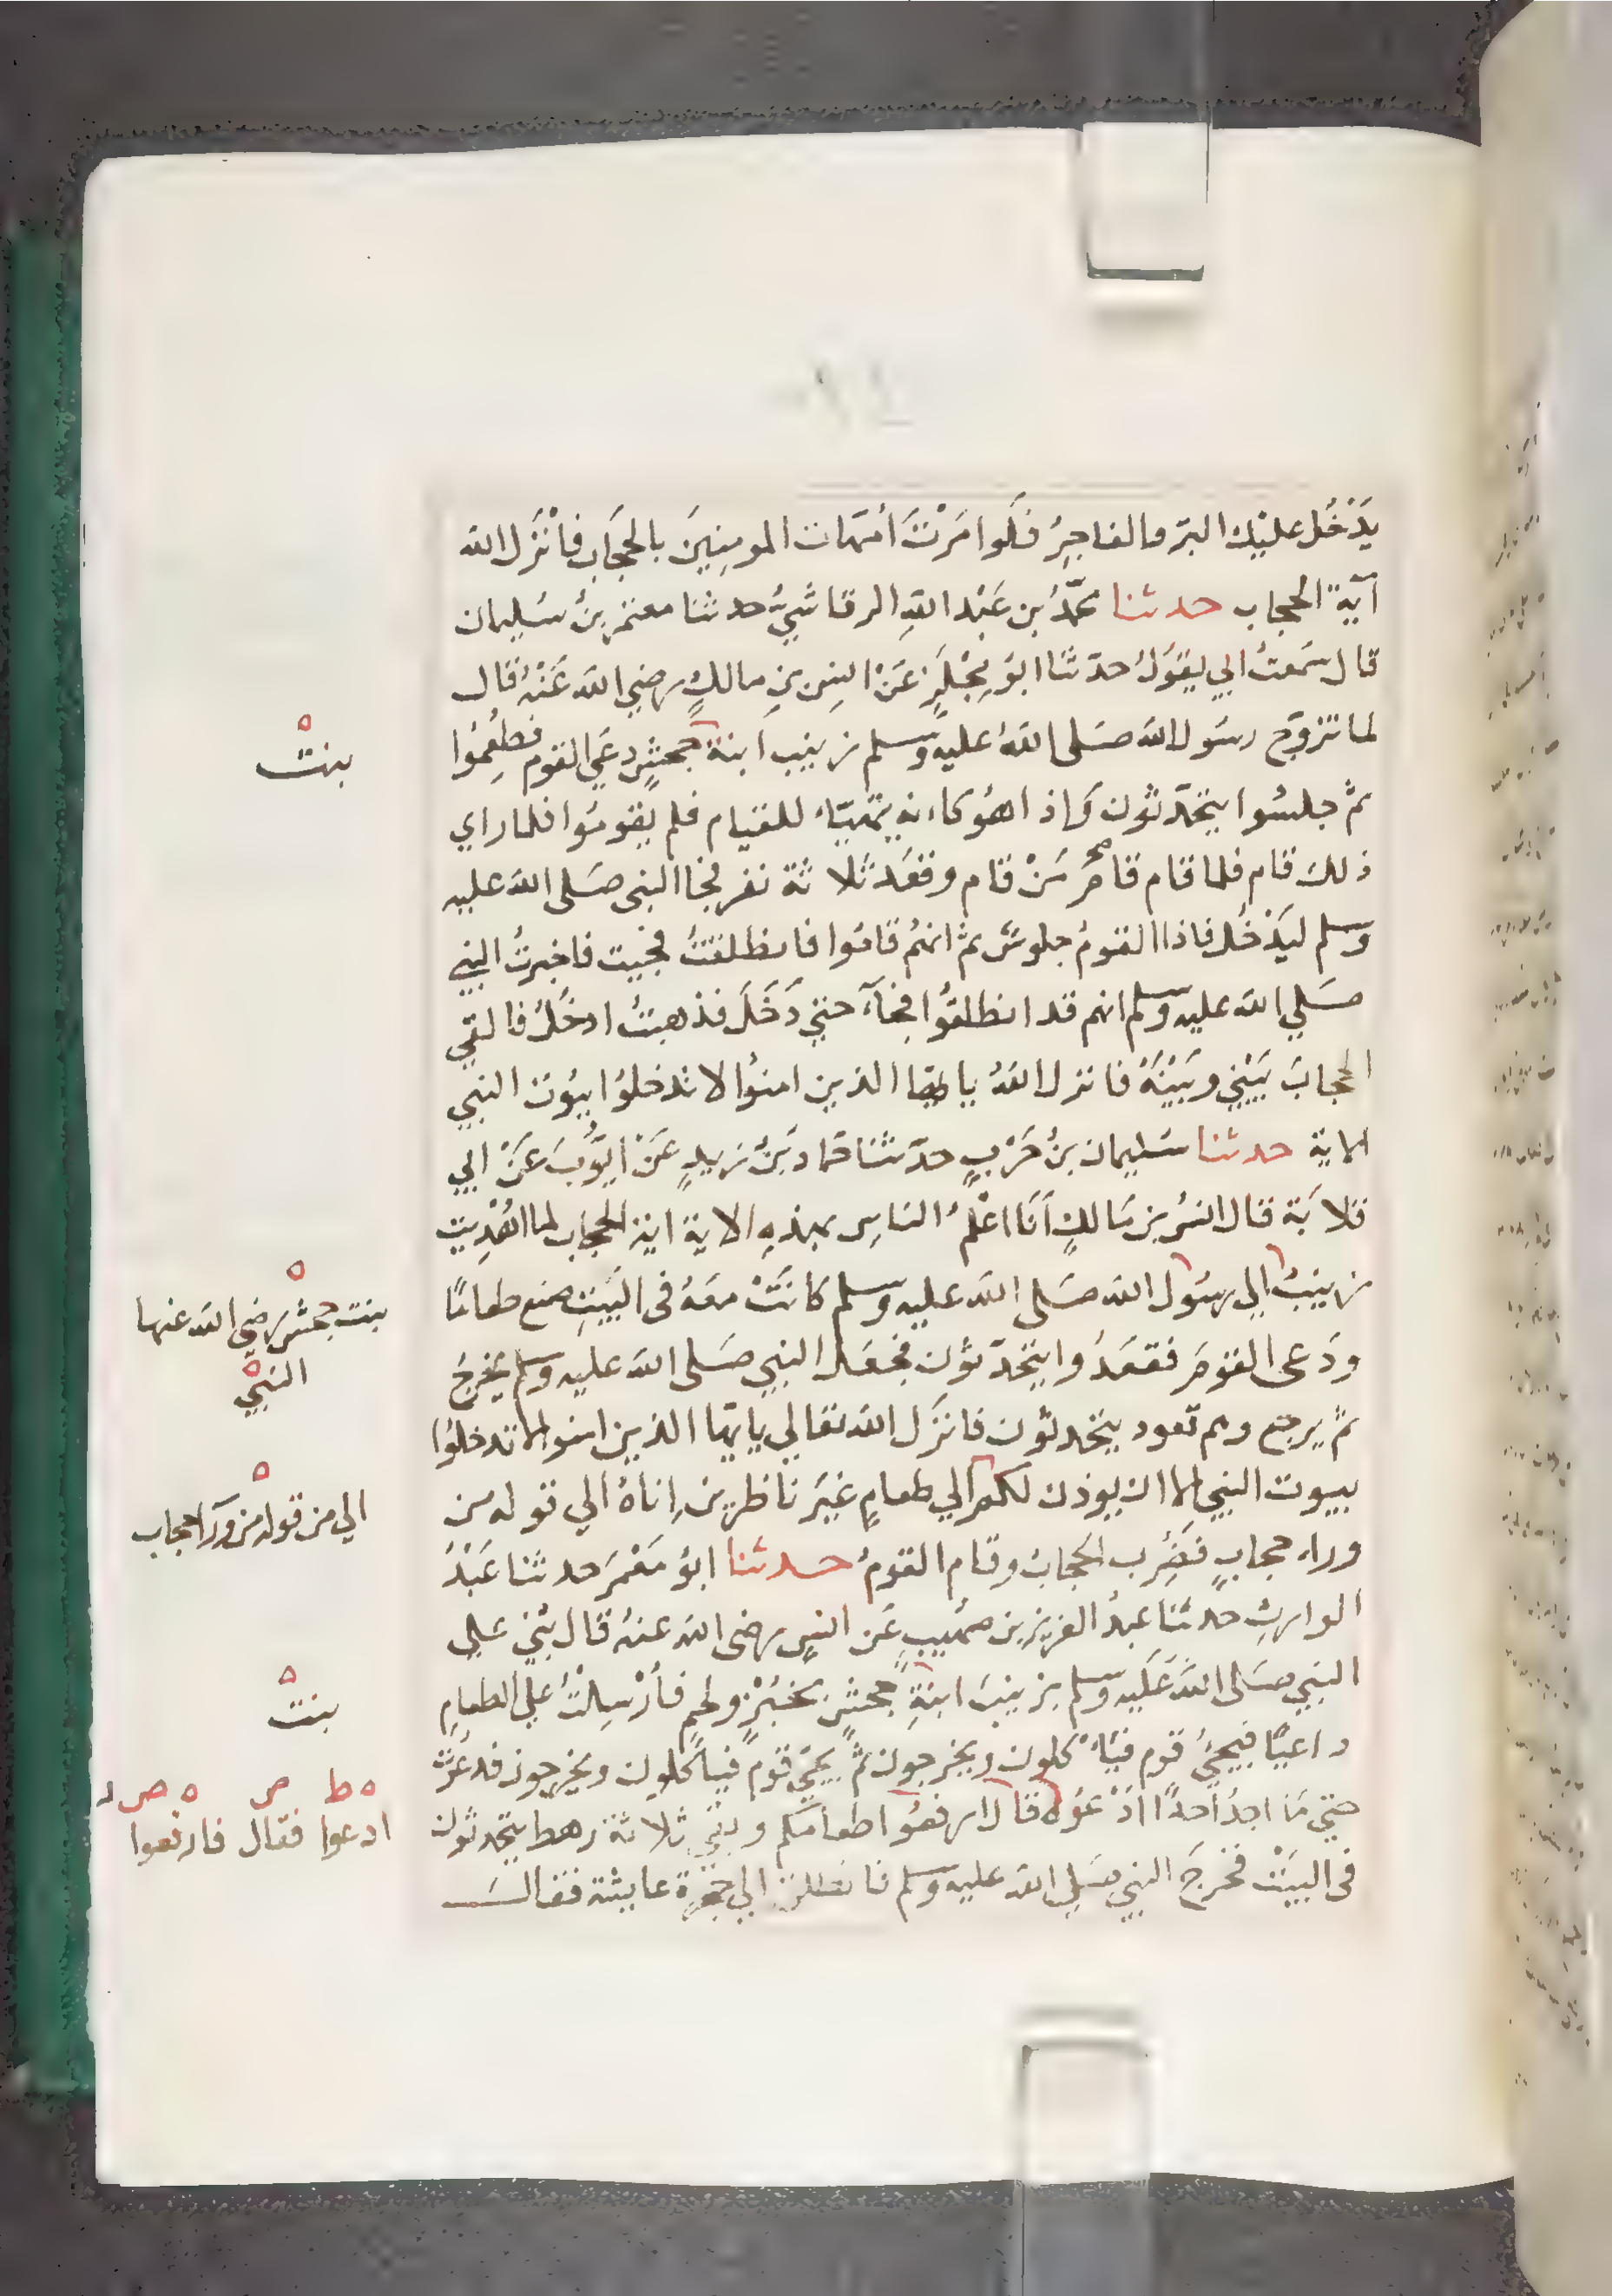 يَدْخُل عليْك البَرّ والفاجِرُ فَلَوا مَرْتَ أمّهات المومِنِينَ بالحِجَاب فَأنْزَل الله
آيَةَ الحجاب حدثنا محمّدُ بن عَبْد اللهِ الرقاشيُّ حدثنا معتمر بنُ سُليمان
قال سَمعتُ ابي يقوُلُ حدّثنا ابوُ مِجْلَزٍ عَنْ انسِ بنِ مالكٍ رضي الله عَنْهُ قال
لما تزوّج رسُول الله صَلى اللهُ عليه وسلم زينب ابنة جحشٍ دعَي القوم فطَعِمُوا
ثمّ جلسُوا يتحَدّثون وَاذا هُو كاءنه يتهيّاء للقيام فلم يقومُوا فلما راي
ذلك قام فلما قام قام مَنْ قام وقعَد ثلاثة نفر فجا النبى صَلى الله عليه
وسلم ليَدْخُل فاذا القومُ جلوسٌ ثم انهمُ قامُوا فانطلقتُ فجيت فاخبرتُ النبي
صَلي الله عليه وسلم انهم قد انطلقُوا فجآءَ حتي دَخَلَ فذهبتُ ادخُلُ فالقي
الحجابَ بَيْنِي وبَيْنَهُ فانزل اللهُ يا ايها الذين امنوُا لا تدخلوُا بيُوت النبي
الاية حدثنا سُليمان بنُ حَرْبٍ حدّثنا حَماد بَنُ زيدٍ عَنْ ايّوُبَ عَنْ ابي
قلابَة قال انسُ بن مَالكٍ اَنَا اعْلَمُ الناسِ بهذهِ الاية اية الحجاب لما اهْدِيت
زينبُ الي رسُول الله صَلى الله عليه وسلم كانَتْ معَهُ فى البَيتِ صنع طعامًا
ودَعى القومَ فقعَدُوا يتحدّثوُن فجعَل النبي صَلى الله عليه وسلم يَخرجُ
ثم يرجع وهم قعود يتحدثوُن فانزَل الله تعالي يا ايّها الذين امنوا لا تدخلوُا
بيوت النبي الا ان يوذن لكم الي طعامٍ غيَر ناظرين إناهُ الي قوله من
وراء حجابٍ فضُرِب الحجابُ وقام القومُ حدثنا ابوُ مَعْمَر حدثنا عَبْدُ
الوارثِ حدثنا عبدُ العزيز بن صُهيبٍ عَن انسٍ رضى الله عنهُ قال بُنيَ علي
النبي صَلى اللهُ عَلَيه وسلم بزينبَ ابنةِ جحشٍ بخبْزٍ ولحمٍ فأُرْسِلْتُ علي الطعامِ
داعيًا فيجيُ قوم فيَاءْكلون ويخرجون ثمّ يجيُ قومٌ فياءكلون ويخرجون فدعَوْتُ
حتي مَا اجدُ اَحدًا اَدْعُوهُ قال ارفعُوا طعامكم وبقي ثلاثة رهط يتحدثون
فى البيَتْ فخرجَ النبي صَلي الله عليه وسلم فانطلق الي حجرة عايشة فقالَ
بنت
بنت جحش رضى الله عنها
النبي
الي من قوله من ورآء حجاب
بنت
ه ط ص ه ص د
ادعوا فقال فارفعوا